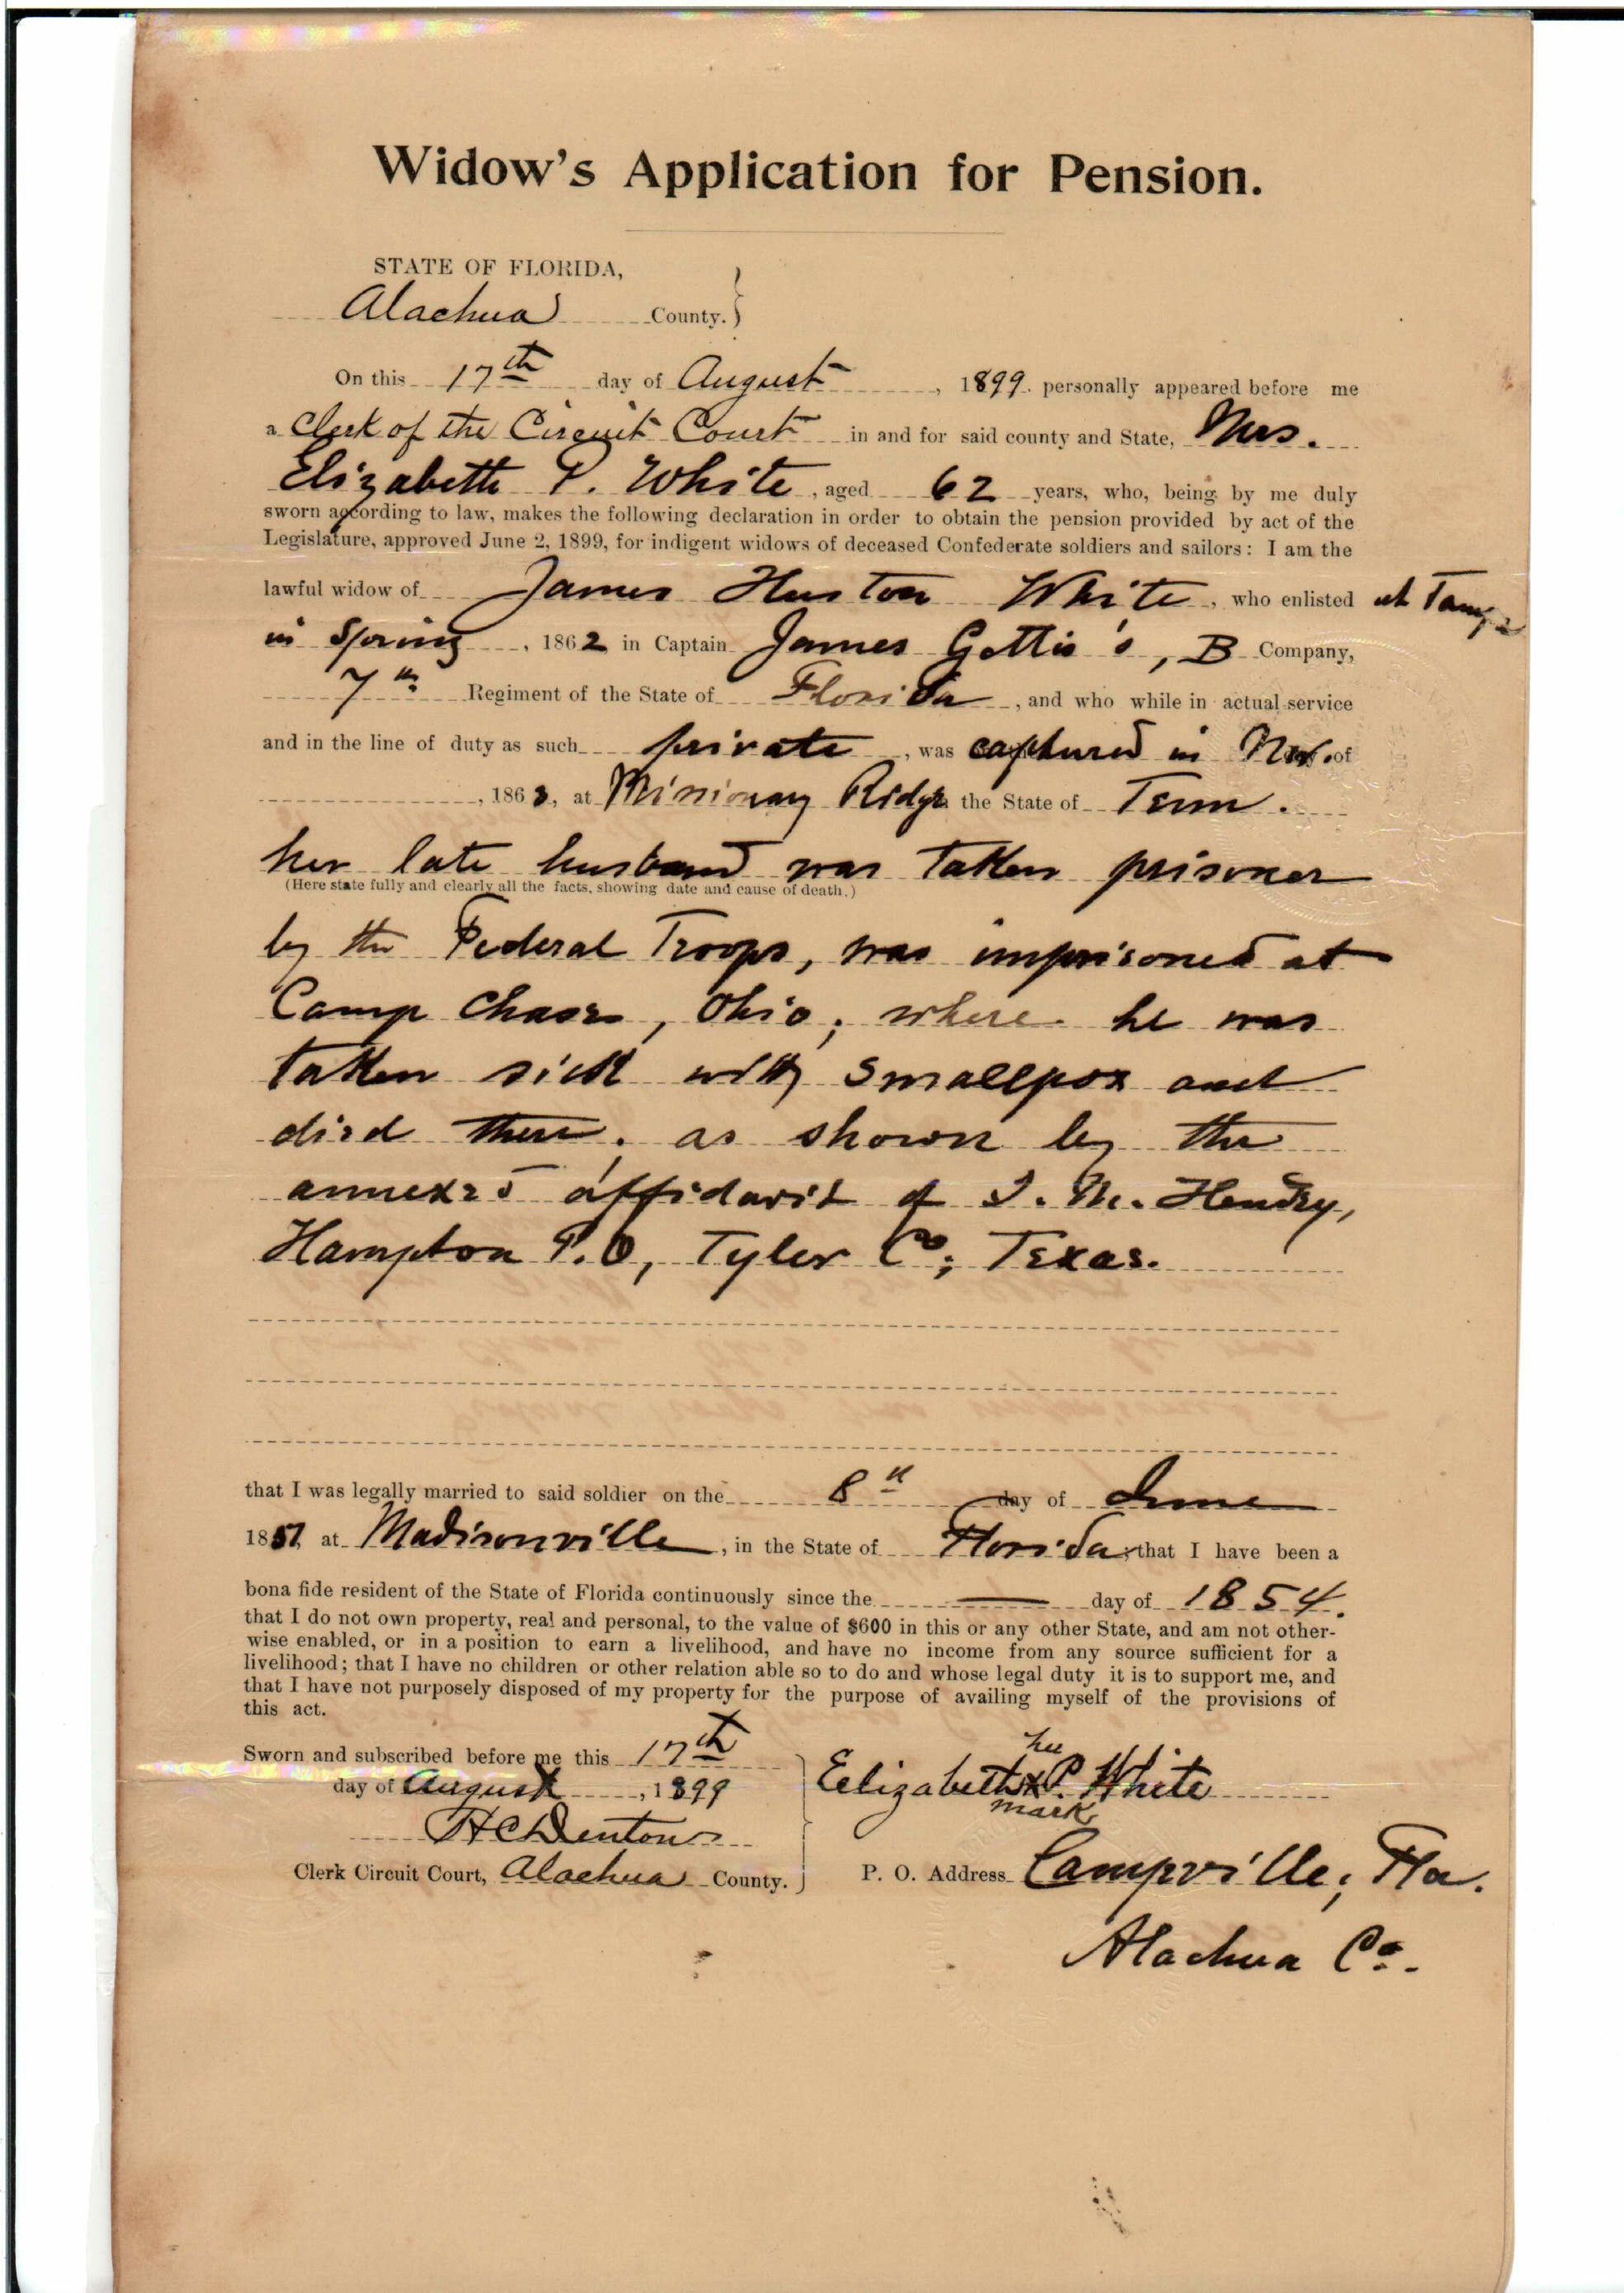 Widow's Application for Pension.
STATE OF FLORIDA,
Alachua County. }
On this 17th day of August, 1899. personally appeared before me
a Clerk of the Circuit Court in and for said county and State, Mrs.
Elizabeth P. White, aged 62 years, who, being by me duly
sworn according to law, makes the following declaration in order to obtain the pension provided by act of the
Legislature, approved June 2, 1899, for indigent widows of deceased Confederate soldiers and sailors: I am the
lawful widow of James Huston White, who enlisted at Tampa
in Spring, 1862 in Captain James Gettis's, B Company,
7th Regiment of the State of Florida, and who while in actual service
and in the line of duty as such private, was captured in Nov. of
, 1863, at Missionary Ridge the State of Tenn.
her late husband was taken prisoner
(Here state fully and clearly all the facts, showing date and cause of death.)
by the Federal Troops, was imprisoned at
Camp Chase, Ohio; where he was
taken sick with smallpox and
died there. as shown by the
annexed affidavit of J. M. Hendry,
Hampton P.O, Tyler Co; Texas.
that I was legally married to said soldier on the 8th day of June
1857 at Madisonville, in the State of Florida; that I have been a
bona fide resident of the State of Florida continuously since the — day of 1854.
that I do not own property, real and personal, to the value of $600 in this or any other State, and am not other-
wise enabled, or in a position to earn a livelihood, and have no income from any source sufficient for a
livelihood; that I have no children or other relation able so to do and whose legal duty it is to support me, and
that I have not purposely disposed of my property for the purpose of availing myself of the provisions of
this act.
Sworn and subscribed before me this 17th
day of August, 1899
H C Denton
Clerk Circuit Court, Alachua County. }
her
Elizabeth x P. White
mark
P. O. Address Campville, Fla.
Alachua Co.